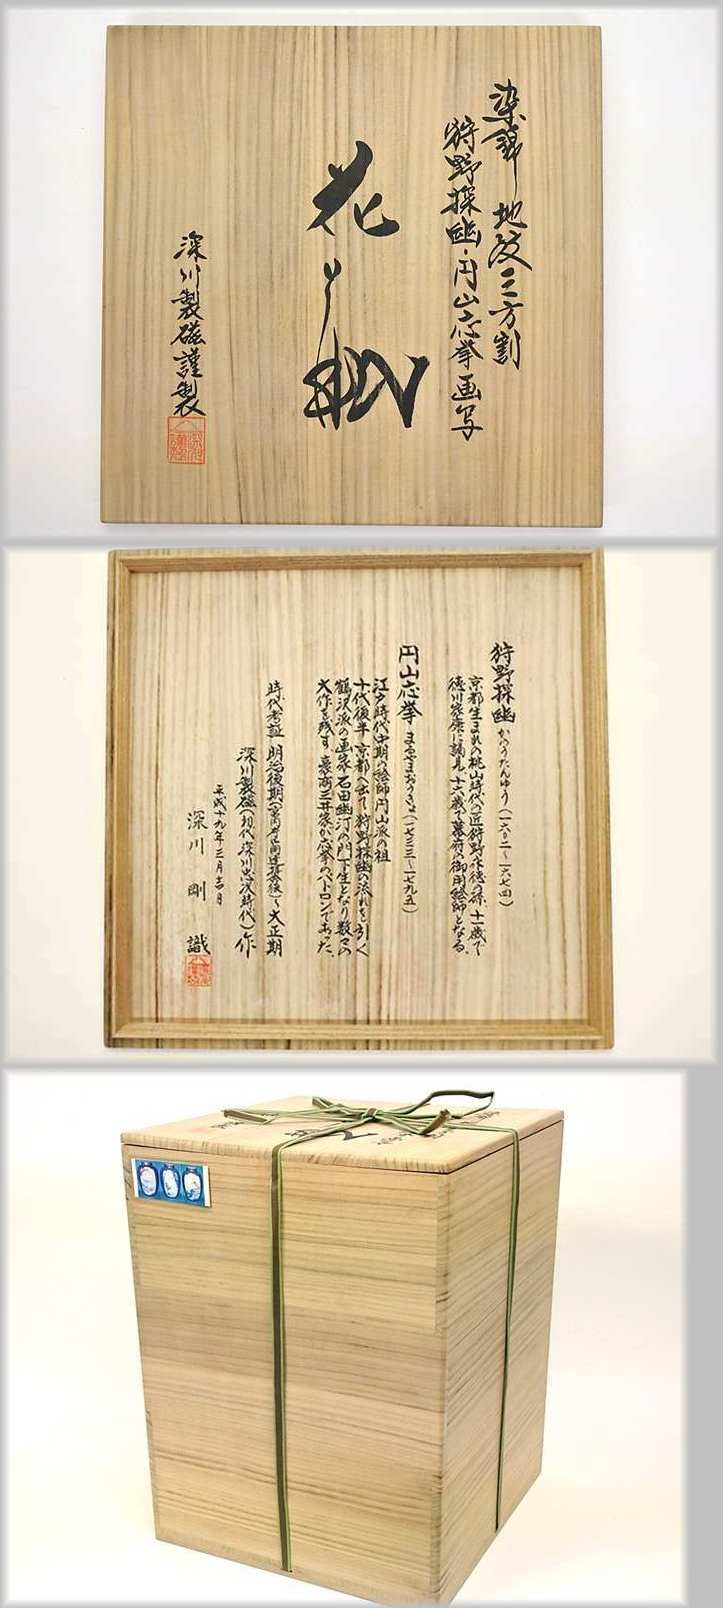 染錦 地紋三方割
狩野探幽・円山応挙画写
花
深川製磁謹製
狩野探幽 かのうたんゆう(一六〇二~一六七四)
京都生まれの桃山時代の巨匠狩野永徳の孫、十一歳で
徳川家康に謁見、十六歳で幕府の御用絵師となる。
円山応挙 まるやまおうきょ(一七三三~一七九五)
江戸時代中期の絵師円山派の祖
十代後半京都へ出て狩野探幽の流れを引く
鶴沢派の画家石田幽汀の門下生となり数々の
大作を残す 豪商三井家が応挙のパトロンであった。
時代考証 明治後期(宮内省御用達拝命後)~大正期
深川製磁(初代深川忠次時代)作
平成十九年三月吉日
深川 剛 識